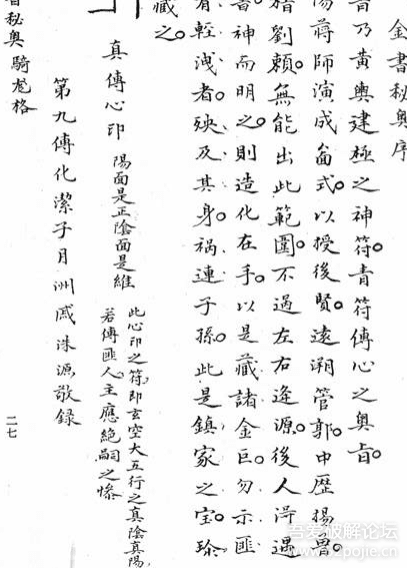 金書秘奧序
旨乃黃輿建極之神符。青符傳心之奧旨。
陽蔣師演成式。以授後賢。遠溯管郭。中歷楊曾
劉賴。無能出此範圍。不過左右逢源。後人淂遇
書神而明之。則造化在手。以是藏諸金匱。勿示匪
有輕洩者。殃及其身。禍連子孫。此是鎮家之宝。珍
藏之。
真傳心印 陽面是正陰面是維
此心印之符。即玄空大五行之真陰真陽。
若傳匪人。主應絕嗣之慘
第九傳化潔子月洲戚洙源敬録
書秘奧騎龍格
二七
吾爱破解论坛
www.52pojie.cn